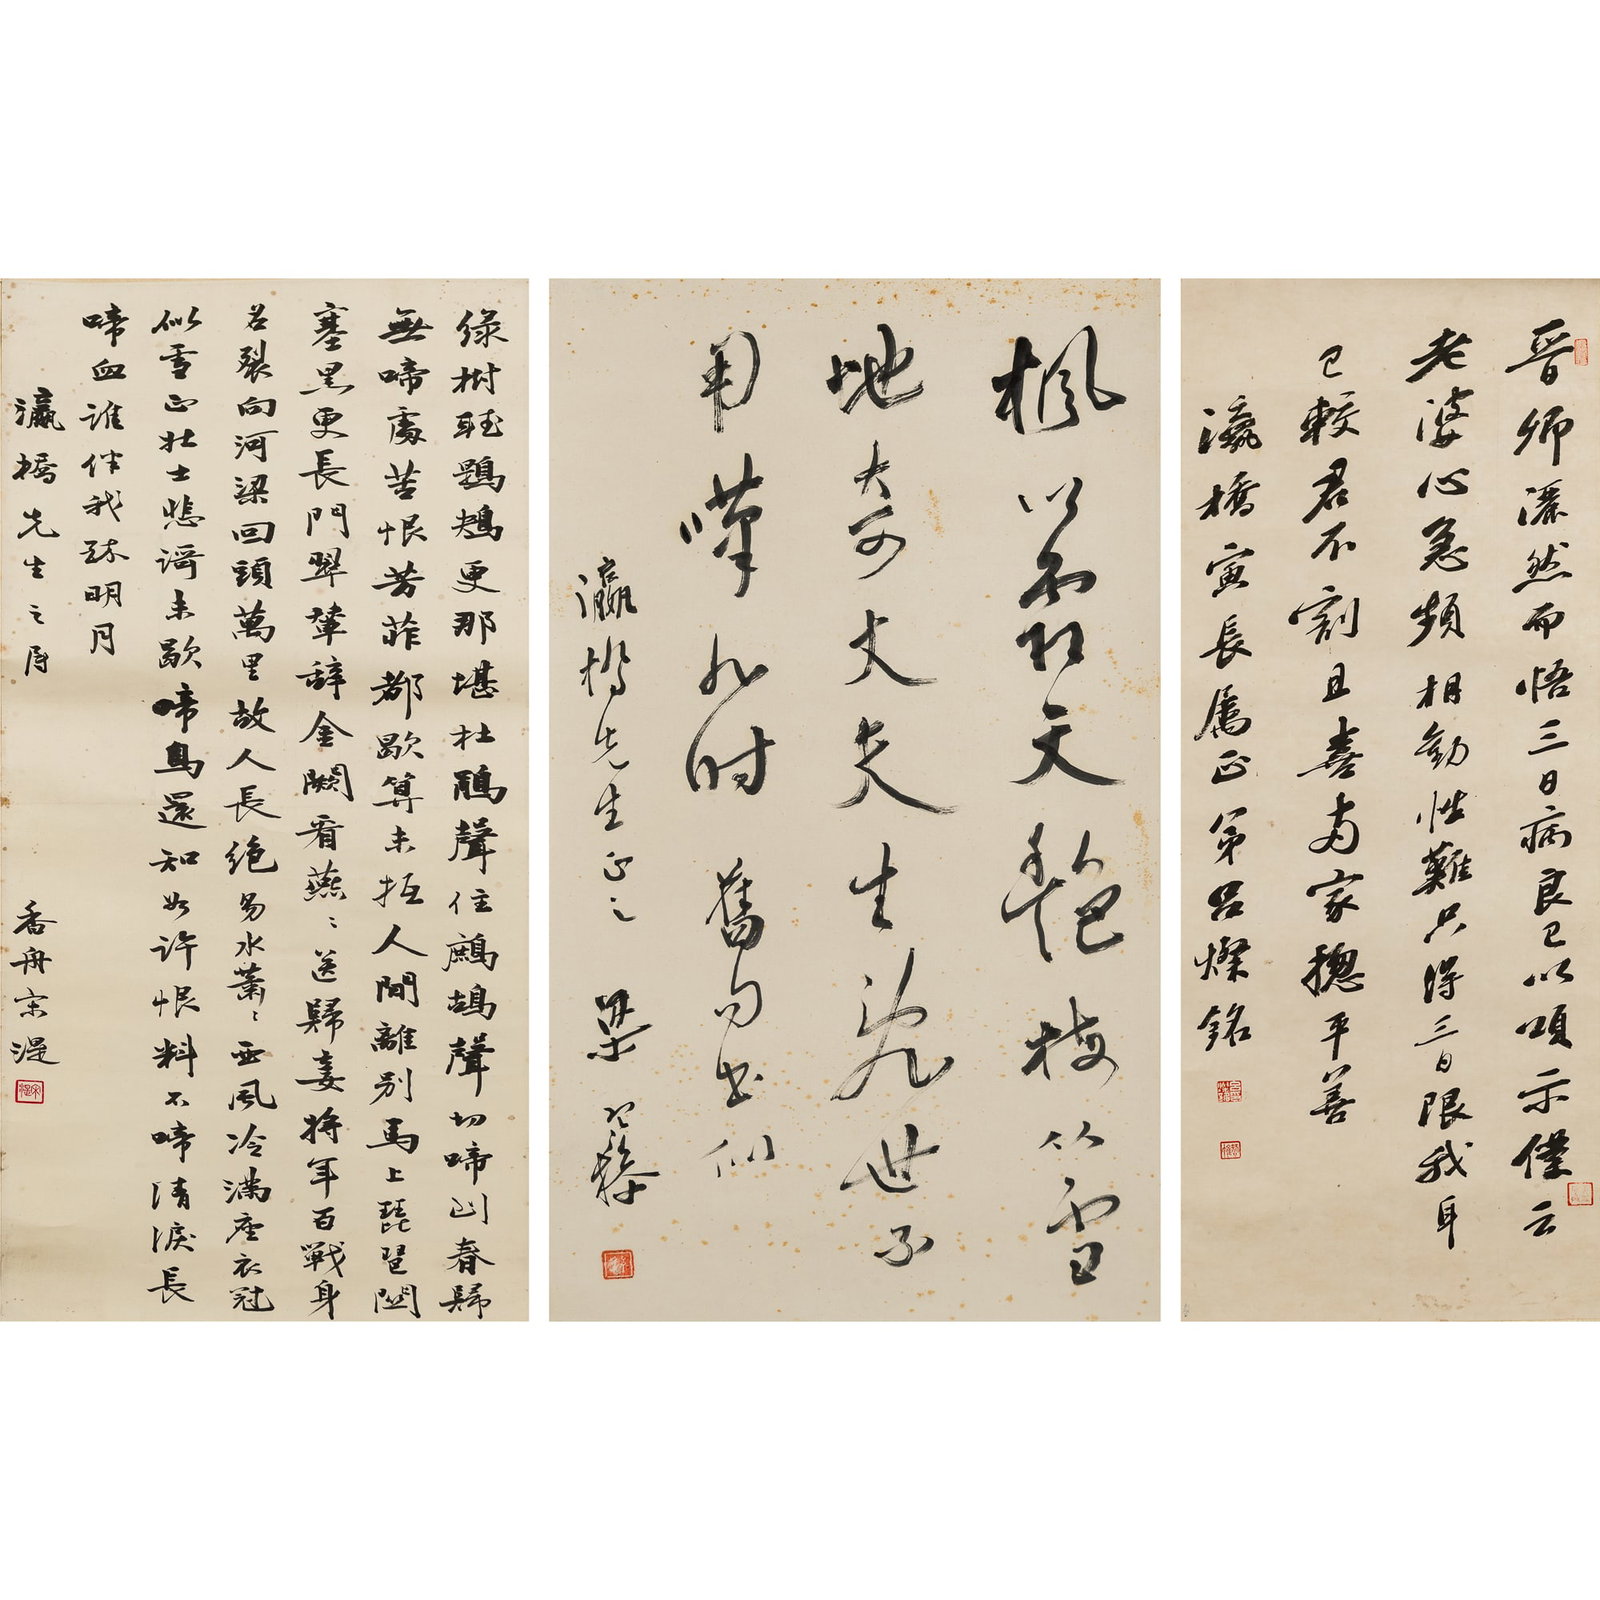 晉卿灑然而悟三日病良已以頌示僕云
老婆心急頻相勸性難只得三日限我身
已較君不割且喜兩家總平善
瀛橋寅長屬正 弟呂燦銘
楓以霜天艷梅以雪
地奇大丈夫生亂世不
用嘆非時 舊句書似
瀛橋先生正之 梁寒操
綠樹聽鶗鴂更那堪杜鵑聲住鷓鴣聲切啼到春歸
無啼處苦恨芳菲都歇算未抵人間離別馬上琵琶關
塞黑更長門翠輦辭金闕看燕〻送歸妾將軍百戰身
名裂向河梁回頭萬里故人長絕易水蕭〻西風冷滿座衣冠
似雪正壯士悲謌未歇啼鳥還知如許恨料不啼清淚長
啼血誰伴我醉明月
瀛橋先生之屬 香舟宋湜